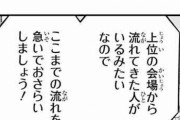 上位の会場から
流れてきた人が
いるみたい
なので
ここまでの流れを
急いでおさらい
しましょう！